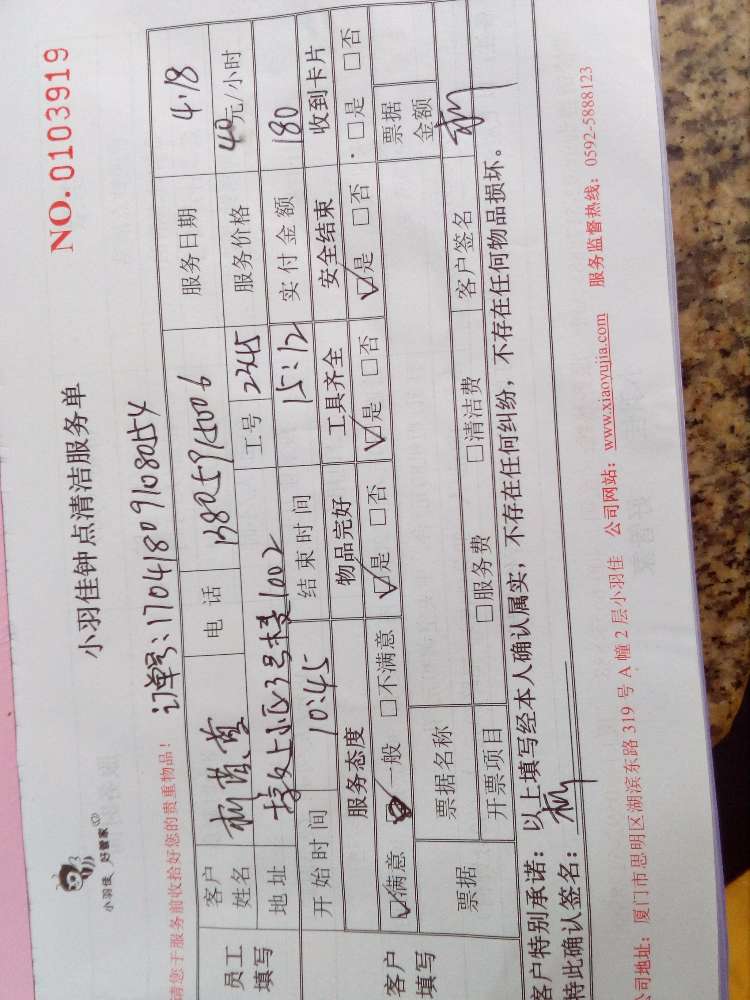 小羽佳 好管家
小羽佳钟点清洁服务单
NO.0103919
请您于服务前收拾好您的贵重物品！
订单号:17041809108054
员工填写 客户姓名 电话 服务日期 4.18
地址 3号楼1002 工号 2345 服务价格 40元/小时
开始时间 10:45 结束时间 15:12 实付金额 180
客户填写 服务态度 物品完好 工具齐全 安全结束 收到卡片
☑满意 □一般 □不满意 ☑是 □否 ☑是 □否 ☑是 □否 □是 □否
票据 票据名称 票据金额
开票项目 □服务费 □清洁费 客户签名
客户特别承诺：以上填写经本人确认属实，不存在任何纠纷，不存在任何物品损坏。
特此确认签名：
公司地址：厦门市思明区湖滨东路 319 号 A 幢 2 层小羽佳 公司网站：www.xiaoyujia.com 服务监督热线：0592-5888123